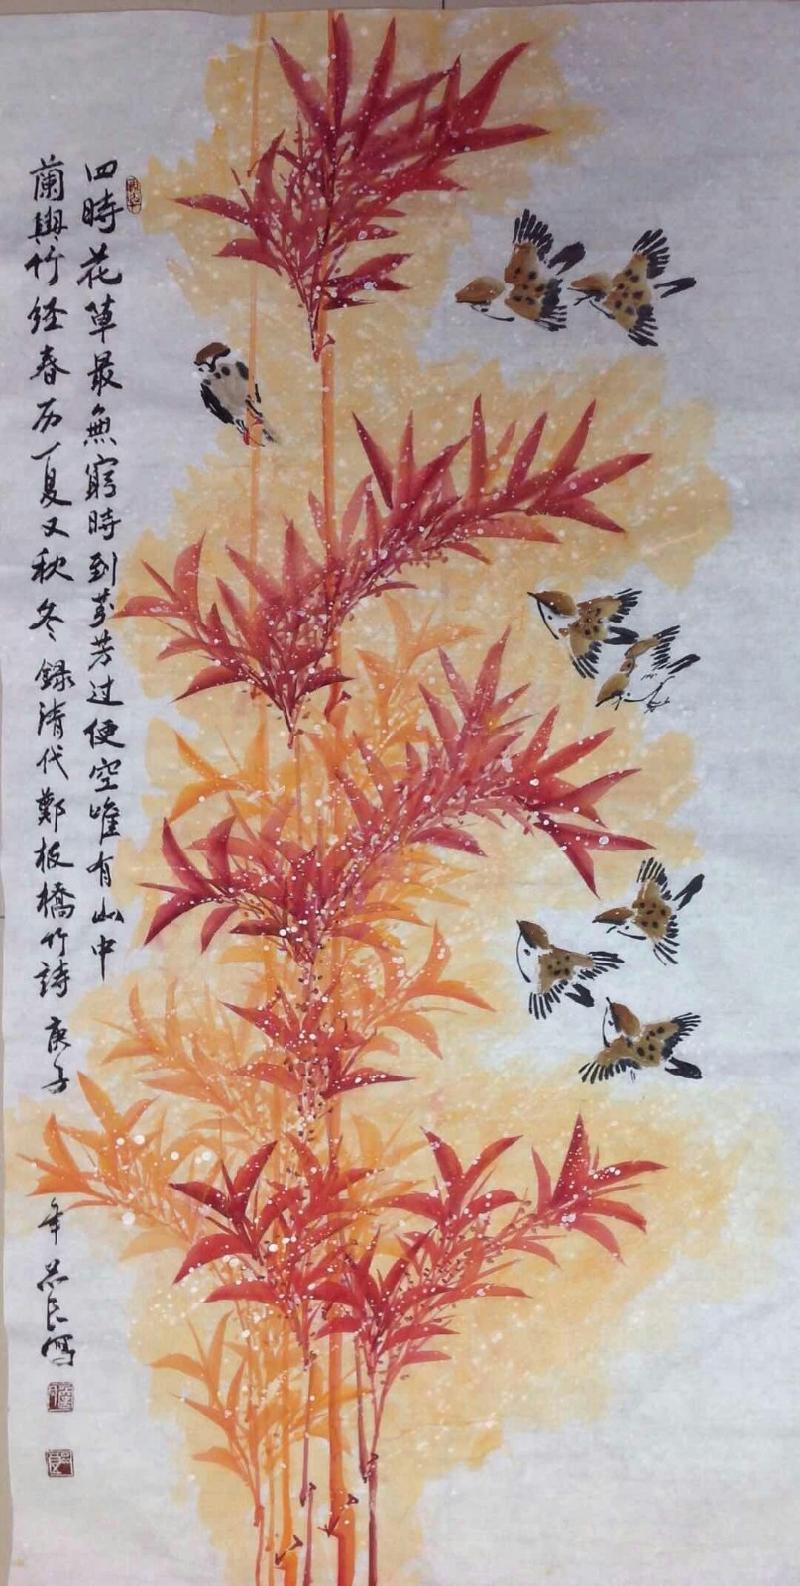 四時花草最無窮時到芬芳过便空唯有山中
蘭與竹经春历夏又秋冬録清代鄭板橋竹詩庚子
年